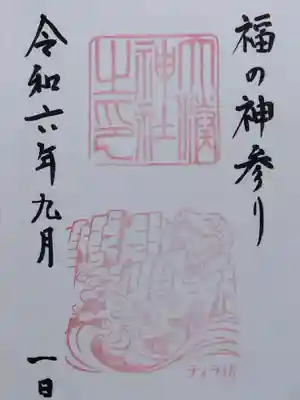 福の神参り
神社
之印
令和六年九月 一日